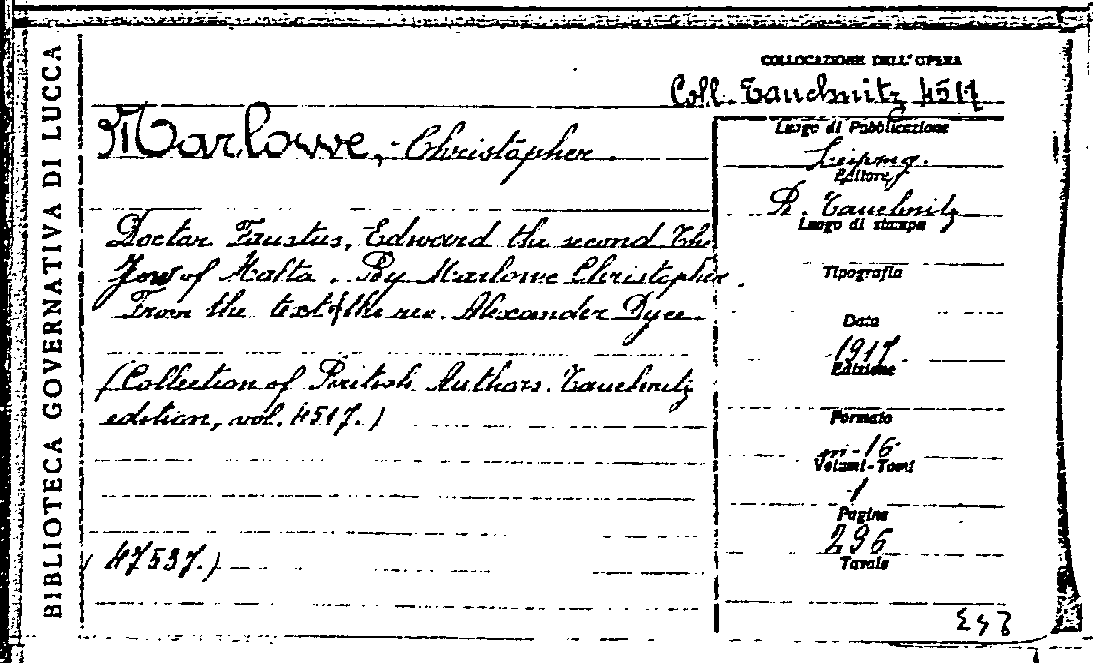 BIBLIOTECA GOVERNATIVA DI LUCCA
COLLOCAZIONE DELL'OPERA
Coll. Tauchnitz 4517
Marlowe, Christopher.
Doctor Faustus, Edward the second The
Jew of Malta. By Marlowe Christopher.
From the text of the rev. Alexander Dyce.
(Collection of British Authors. Tauchnitz
edition, vol. 4517.)
(47537.)
Luogo di Pubblicazione
Leipzig.
Editore
B. Tauchnitz
Luogo di stampa
Tipografia
Data
1917.
Edizione
Formato
in-16
Volumi-Tomi
1
Pagine
296
Tavole